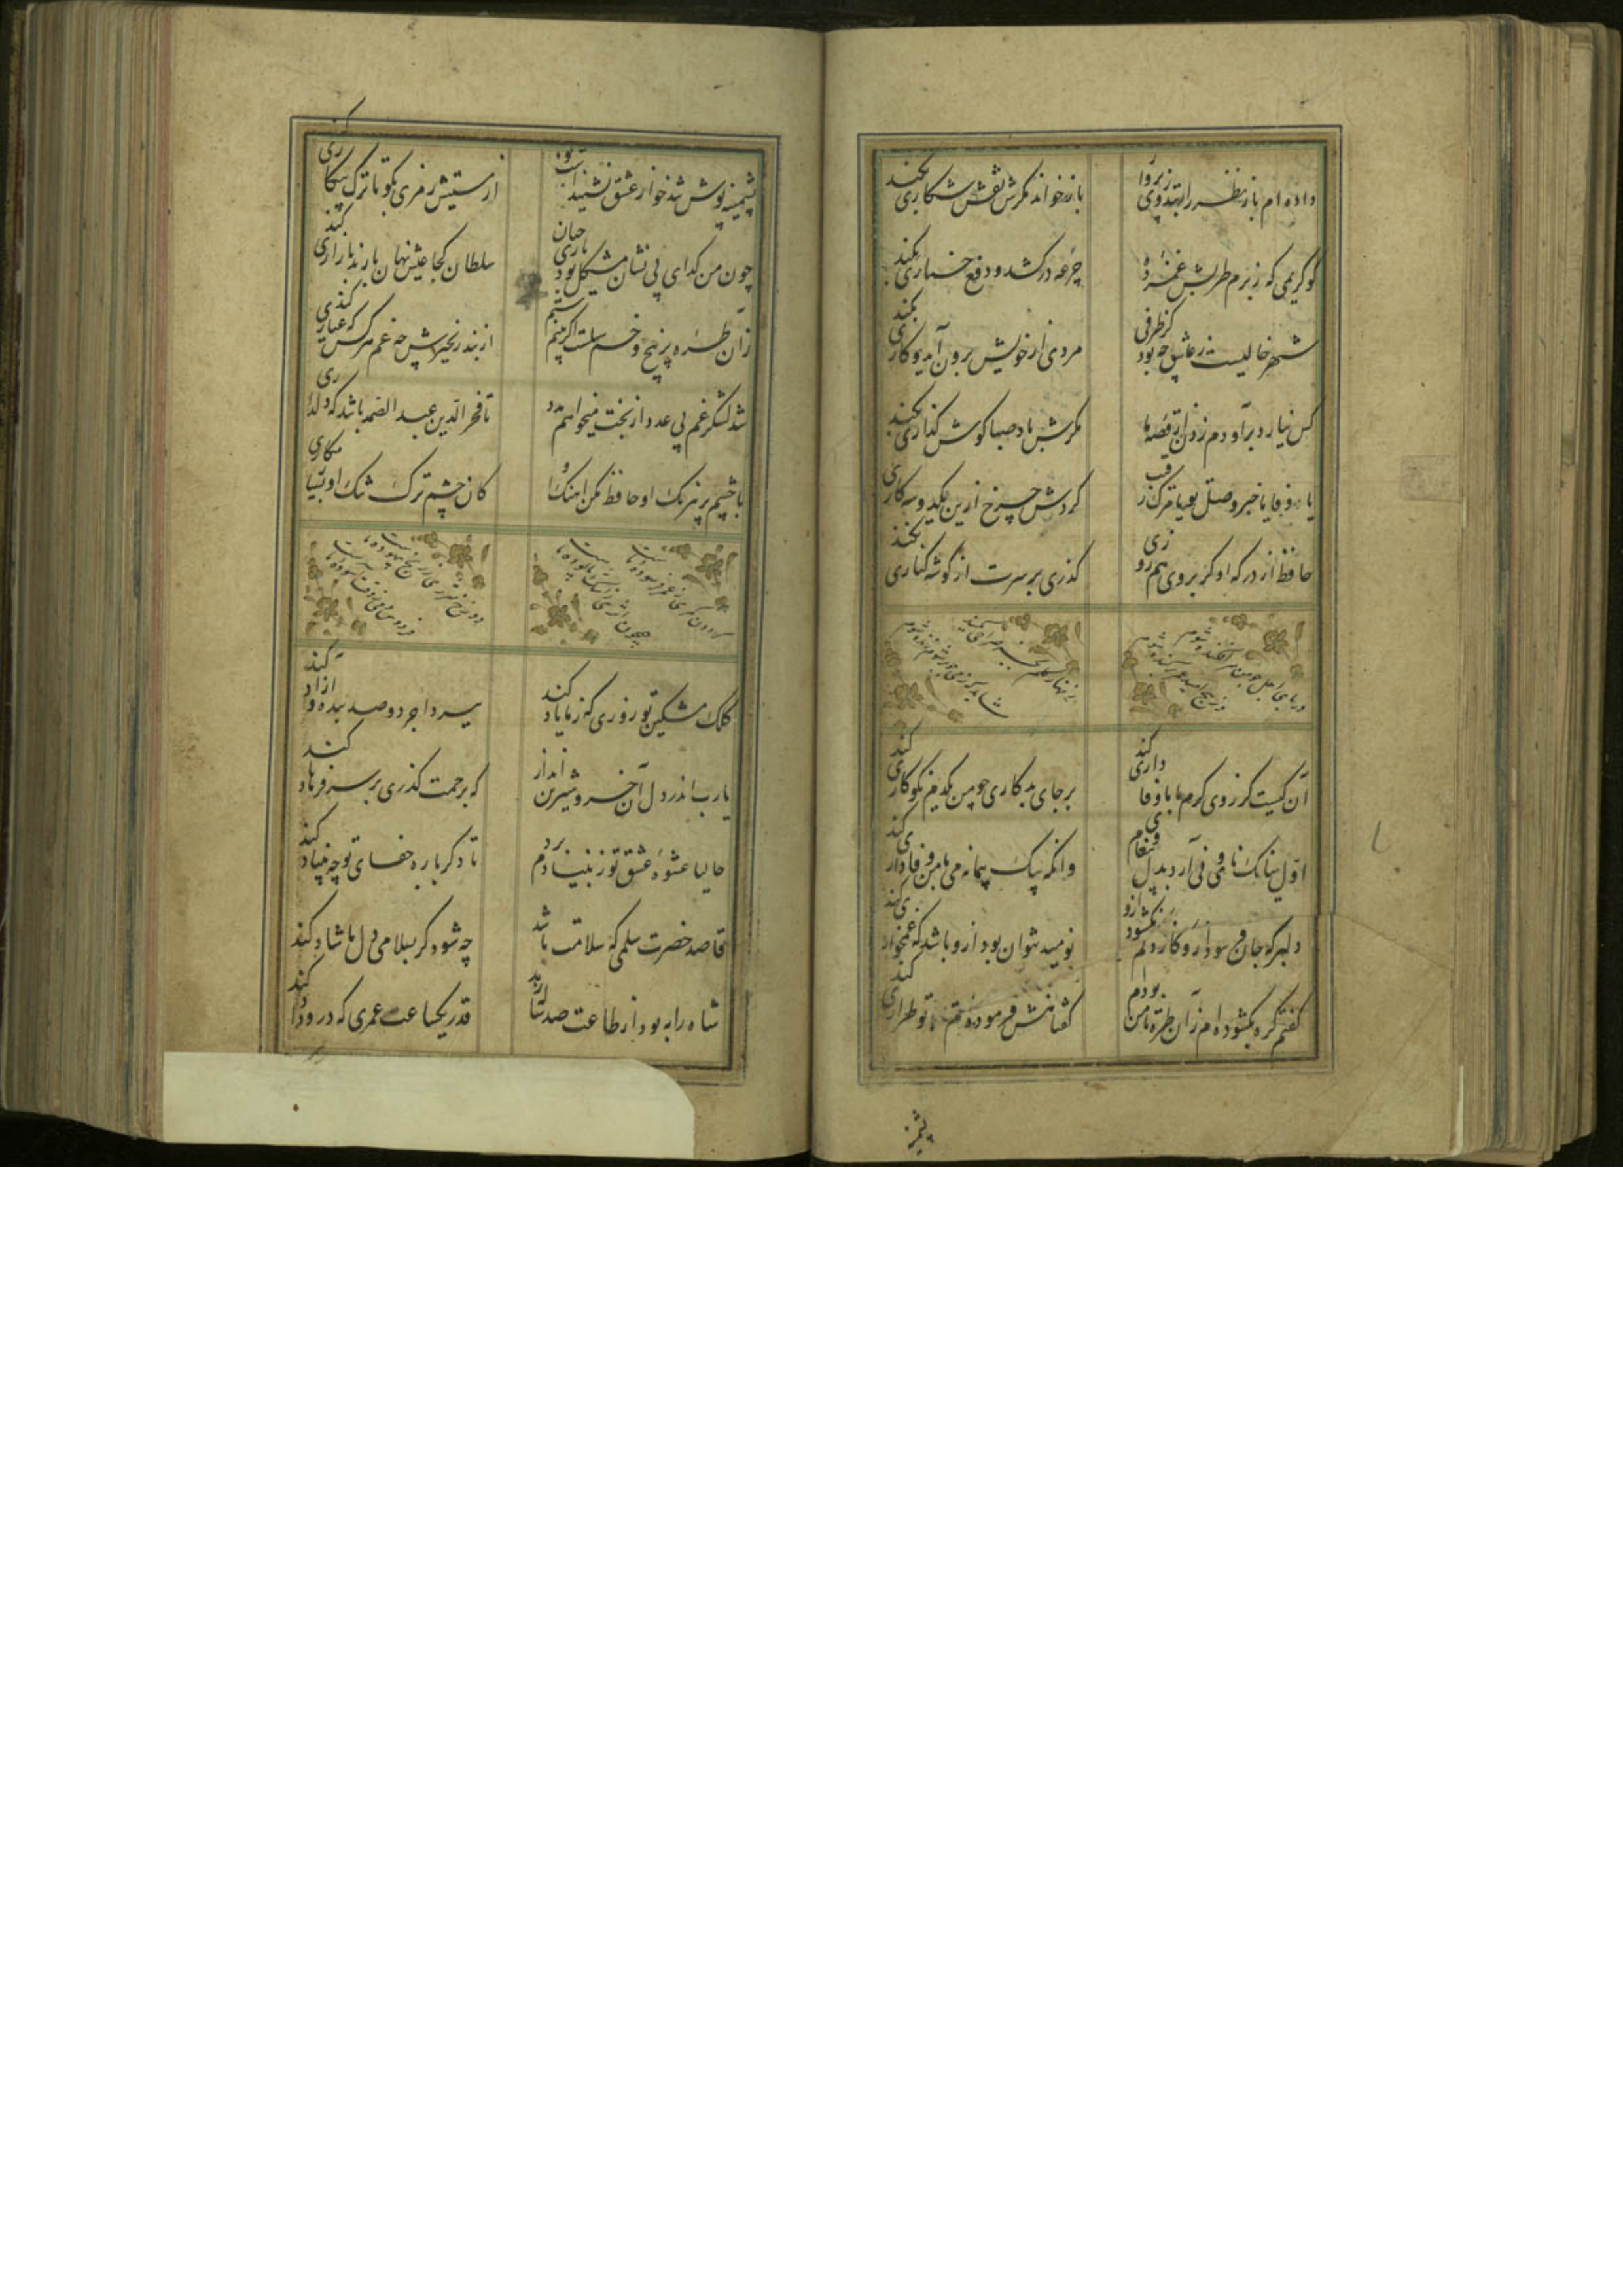 داده ام باز نظر را بتذروی پرواز
باز خواند مکرش نقش شکاری بکند
کو کریمی که ز بزم طربش غمزده
جرعه درکشد و دفع خماری بکند
شهر خالیست ز عشاق چه بود کز طرفی
مردی از خویش برون آید و کاری بکند
کس نیارد بر او دم زدن از قصه ما
مکرش باد صبا کوش کذاری بکند
یا وفا یا خبر وصل تو یا مرک رقیب
کردش چرخ ازین یکدو سه کاری بکند
حافظ از درکه او کر بروی هم روزی
کذری بر سرت از کوشه کناری بکند
آن کیست کز روی کرم با ما وفاداری کند
بر جای بدکاری چو من یکدم نکوکاری کند
اول ببانک نای و نی آرد بدل پیغام وی
وانکه بیک پیمانه می با من وفاداری کند
دلبر که جان فرسود ازو کار دلم نکشود ازو
نومید نتوان بود ازو باشد که غمخواری کند
کفتم کره نکشوده ام زان طره تا من بوده ام
کفتا منش فرموده ام تا با تو طراری کند
پشمینه
پشمینه پوش تندخو از عشق نشنیدست بو
از مستیش رمزی بکو تا ترک هشیاری کند
چون من کدای بی نشان مشکل بود یاری چنان
سلطان کجا عیش نهان با رند بازاری کند
زان طره پر پیچ و خم سهلست اکر بینم ستم
از بند و زنجیرش چه غم هر کس که عیاری کند
شد لشکر غم بی عدد از بخت میخواهم مدد
تا فخر الدین عبد الصمد باشد که دلداری کند
با چشم پر نیرنک او حافظ مکن آهنک او
کان چشم ترک شنک او بسیار مکاری کند
کلک مشکین تو روزی که ز ما یاد کند
ببرد اجر دو صد بنده که آزاد کند
یارب اندر دل آن خسرو شیرین انداز
که برحمت کذری بر سر فرهاد کند
حالیا عشوه عشق تو ز بنیادم برد
تا دکر باره جفای تو چه بنیاد کند
قاصد حضرت سلمی که سلامت باشد
چه شود کر بسلامی دل ما شاد کند
شاه را به بود از طاعت صد ساله زهد
قدر یکساعت عمری که درو داد کند